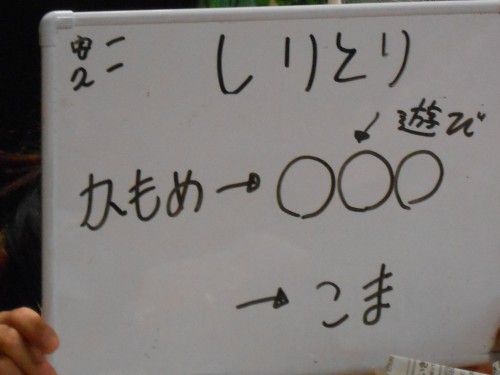 しりとり
遊び
かもめ→○○○
→こま